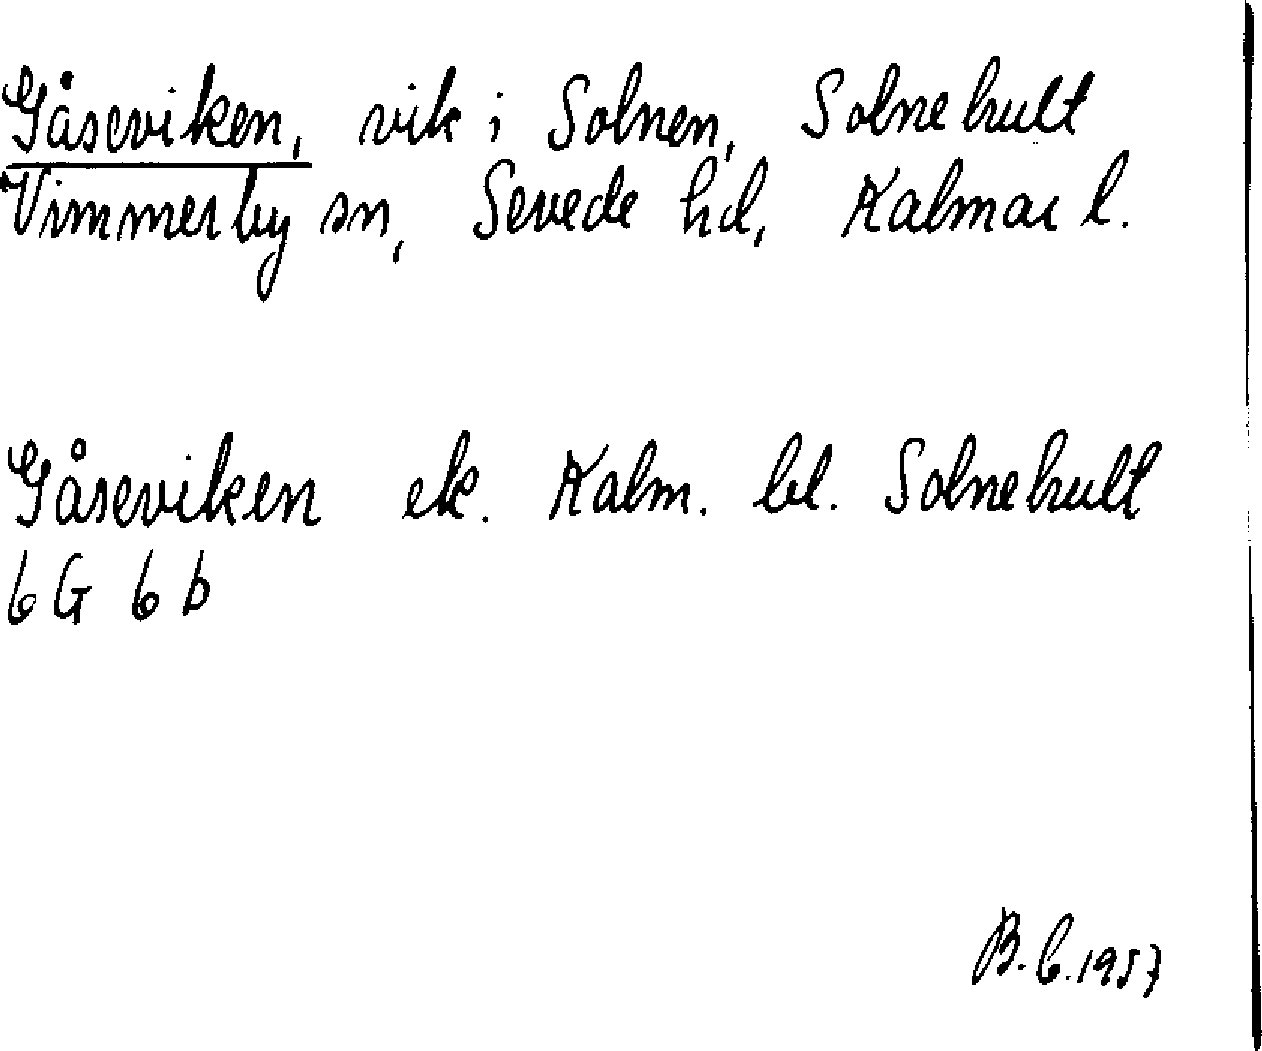 Gåseviken, vik i Solnen, Solnehult
Vimmerby sn, Sevede hd, Kalmar l.
Gåseviken ek. Kalm. bl. Solnehult
6 G 6 b
B. C. 1957